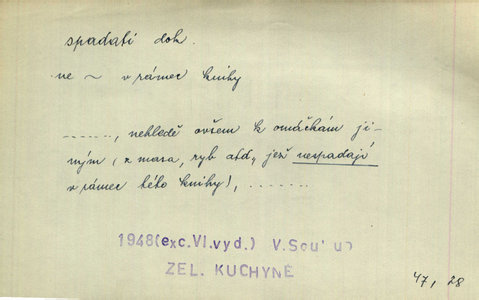 spadati dok.
ne ~ v rámec knihy
......., nehledě ovšem k omáčkám ji-
ným, (z masa, ryb atd., jež nespadají
v rámec této knihy), .......
1948 (exc. VI. vyd.) V.
ZEL. KUCHYNĚ
47, 28